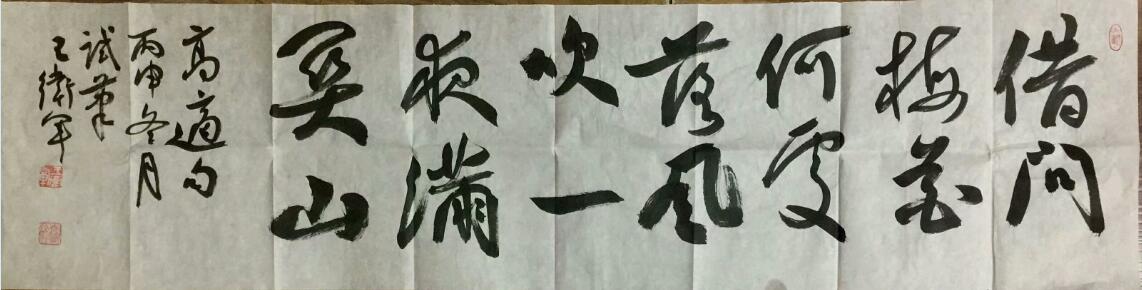 借问
梅花
何处
落风
吹一
夜满
关山
高適句
丙申冬月
试笔
王卫军